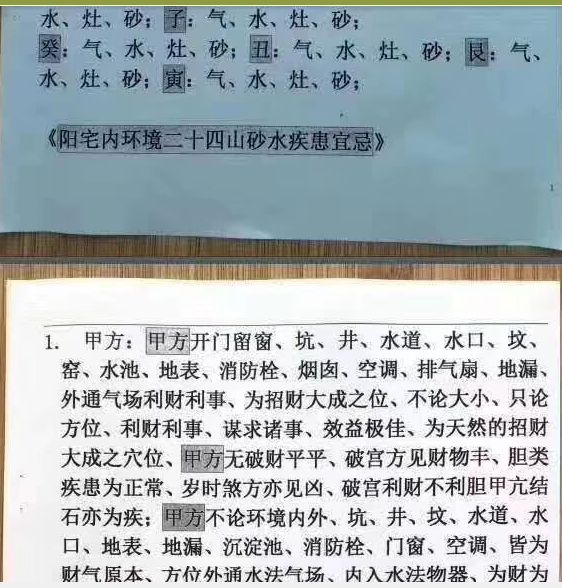 水、灶、砂；子：气、水、灶、砂；
癸：气、水、灶、砂；丑：气、水、灶、砂；艮：气、
水、灶、砂；寅：气、水、灶、砂；
《阳宅内环境二十四山砂水疾患宜忌》
1
1. 甲方：甲方开门留窗、坑、井、水道、水口、坟、
窑、水池、地表、消防栓、烟囱、空调、排气扇、地漏、
外通气场利财利事、为招财大成之位、不论大小、只论
方位、利财利事、谋求诸事、效益极佳、为天然的招财
大成之穴位、甲方无破财平平、破宫方见财物丰、胆类
疾患为正常、岁时煞方亦见凶、破宫利财不利胆甲亢结
石亦为疾；甲方不论环境内外、坑、井、坟、水道、水
口、地表、地漏、沉淀池、消防栓、门窗、空调、皆为
财气原本、方位外通水法气场、内入水法物器、为财为